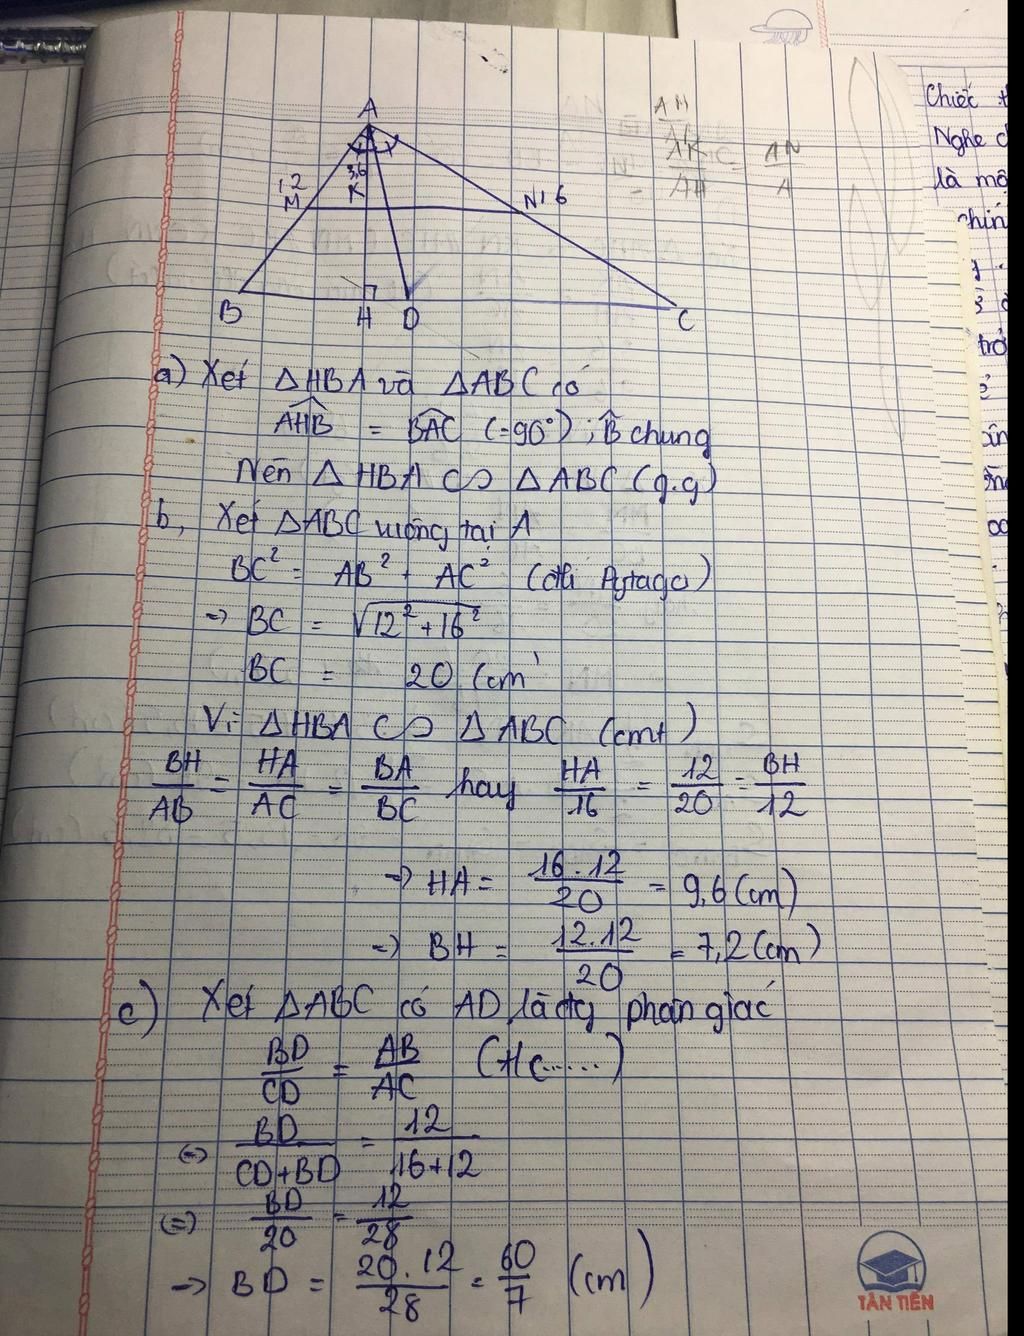 A
AM
AK
AH
=
AN
A
12
M
3,6
K
N16
B
H
D
C
a) Xét ΔHBA và ΔABC có
AHB = BAC (=90°) ; B chung
Nên ΔHBA ∽ ΔABC (g.g)
b, Xét ΔABC vuông tại A
BC² = AB² + AC² (đlí Pytago)
=> BC = √12²+16²
BC = 20 (cm
Vì ΔHBA ∽ ΔABC (cmt)
BH/AB = HA/AC = BA/BC hay HA/16 = 12/20 = BH/12
=> HA = 16.12/20 = 9,6 (cm)
=> BH = 12.12/20 = 7,2 (cm)
c) Xét ΔABC có AD là đg phân giác
BD/CD = AB/AC (t/c.....)
<=> BD/CD+BD = 12/16+12
<=> BD/20 = 12/28
=> BD = 20.12/28 = 60/7 (cm)
Chiếc
Nghe
là
TÂN TIẾN